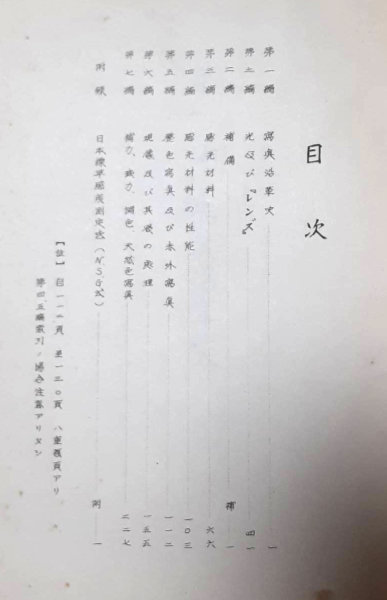 目次
第一編 寫眞沿革史 一
第二編 光及び『レンズ』 四一
第二編 補備 補一
第三編 感光材料 六六
第四編 感光材料の性能 一〇三
第五編 整色寫眞及び赤外寫眞 一一二
第六編 現像及び其後の處理 一五五
第七編 補力、減力、調色、天然色寫眞 二二七
附録 日本標準感度測定法(NSG式) 附一
【註】自一一二頁 至一三〇頁 ハ重複頁アリ
第四五編索引ノ場合注意アリタシ